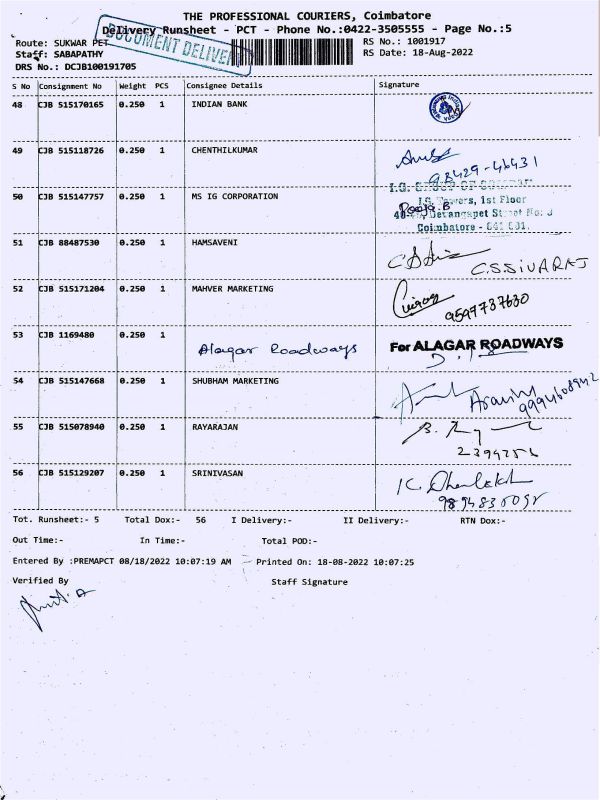 THE PROFESSIONAL COURIERS, Coimbatore
Delivery Runsheet - PCT - Phone No.:0422-3505555 - Page No.:5
DOCUMENT DELIVE
Route: SUKWAR PET
RS No.: 1001917
Staff: SABAPATHY
RS Date: 18-Aug-2022
DRS No.: DCJB100191705
S No Consignment No Weight PCS Consignee Details Signature
48 CJB 515170165 0.250 1 INDIAN BANK
49 CJB 515118726 0.250 1 CHENTHILKUMAR
98429-46431
50 CJB 515147757 0.250 1 MS IG CORPORATION
I.G. GROUP OF
I.G. Towers, 1st Floor
Pooja.B
Devangapet Street No:
Coimbatore - 641 001.
51 CJB 88487530 0.250 1 HAMSAVENI
C.S.SIVARAJ
52 CJB 515171204 0.250 1 MAHVER MARKETING
9597737630
53 CJB 1169480 0.250 1
Alagar Roadways
For ALAGAR ROADWAYS
54 CJB 515147668 0.250 1 SHUBHAM MARKETING
Aravind
9994608942
55 CJB 515078940 0.250 1 RAYARAJAN
56 CJB 515129207 0.250 1 SRINIVASAN
Tot. Runsheet:- 5 Total Dox:- 56 I Delivery:- II Delivery:- RTN Dox:-
Out Time:- In Time:- Total POD:-
Entered By :PREMAPCT 08/18/2022 10:07:19 AM Printed On: 18-08-2022 10:07:25
Verified By Staff Signature